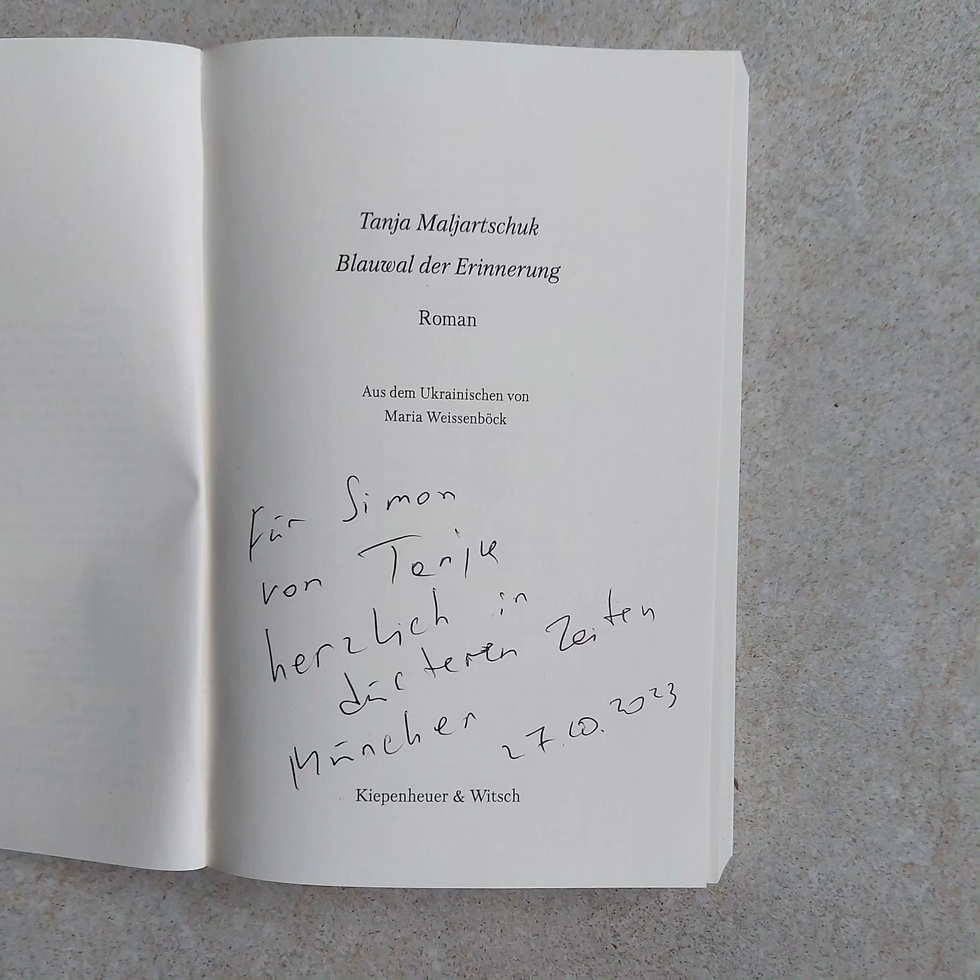 Tanja Maljartschuk
Blauwal der Erinnerung
Roman
Aus dem Ukrainischen von
Maria Weissenböck
Für Simon
von Tanja
herzlich in
düsteren Zeiten
München 27.10.2023
Kiepenheuer & Witsch